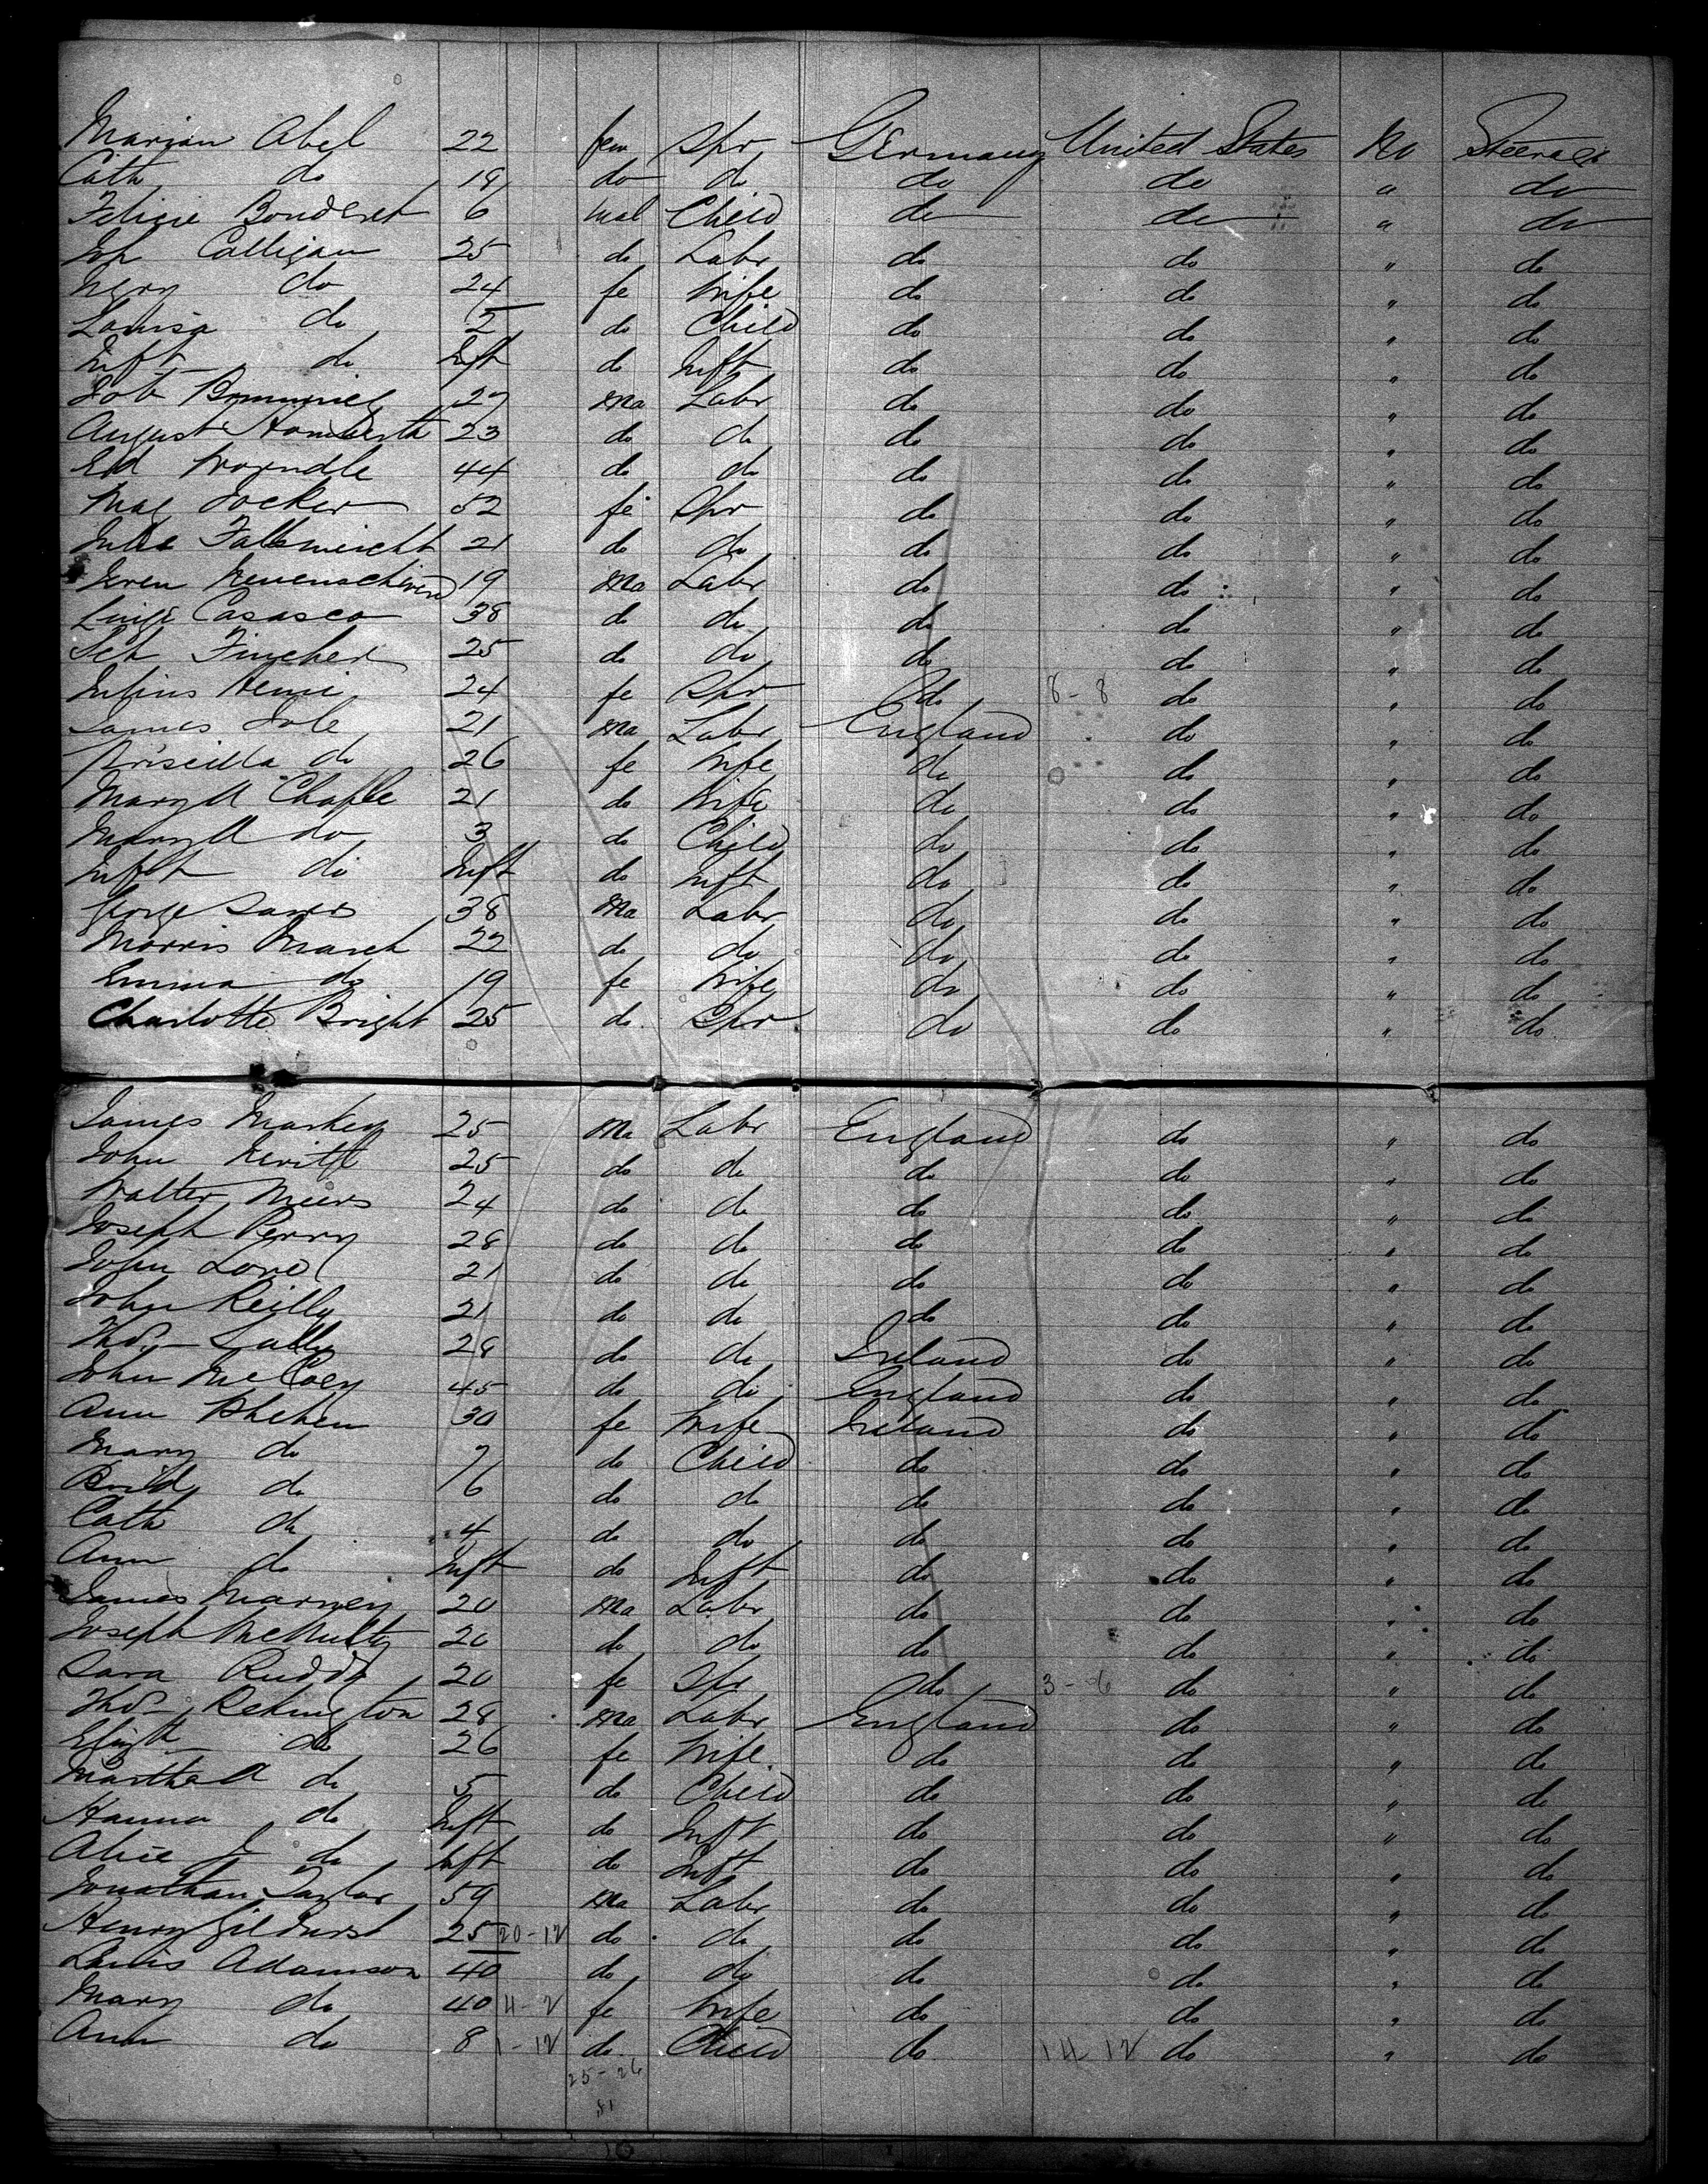 Marian Abel 22 fem Spr Germany United States No Steerage
Cath do 18 do do do do " do
Felicie Bouderet 6 mal Child do do " do
Joh Calligan 25 do Labr do do " do
Mary do 24 fe Wife do do " do
Louisa do 2 do Child do do " do
Inft do Inft do Inft do do " do
Job 27 ma Labr do do " do
August Homberth 23 do do do do " do
Ed Worndle 44 do do do do " do
Mag Jocker 52 fe Spr do do " do
Julia Falbmeicht 21 do do do do " do
19 ma Labr do do " do
Luigi Casasco 38 do do do do " do
Seb Fincher 25 do do do do " do
Julius Henri 24 fe Spr do 8-8 do " do
James Jole 21 ma Labr England do " do
Priscilla do 26 fe Wife do do " do
Mary A Chaple 21 do Wife do do " do
Mary A do 3 do Child do do " do
Inft do Inft do Inft do do " do
George 38 ma Labr do do " do
Morris March 22 do do do do " do
Emma do 19 fe Wife do do " do
Charlotte Bright 25 do Spr do do " do
James Markey 25 ma Labr England do " do
John 25 do do do do " do
Walter Meers 24 do do do do " do
Joseph Perry 28 do do do do " do
John Lovel 21 do do do do " do
John Reilly 21 do do do do " do
Thos Lally 28 do do Ireland do " do
John McCoey 45 do do England do " do
Ann Phelan 30 fe Wife Ireland do " do
Mary do 7 do Child do do " do
Brid do 6 do do do do " do
Cath do 4 do do do do " do
Ann do Inft do Inft do do " do
James Marney 20 ma Labr do do " do
Joseph McNulty 20 do do do do " do
Sara Ruddy 20 fe Spr do 3-6 do " do
Thos Rekington 28 ma Labr England do " do
Elizth do 26 fe Wife do do " do
Martha A do 5 do Child do do " do
Hanna do Inft do Inft do do " do
Alice J do Inft do Inft do do " do
Jonathan Taylor 59 ma Labr do do " do
Henry Gilhurst 25 20-12 do do do do " do
Louis Adamson 40 do do do do " do
Mary do 40 11-2 fe Wife do do " do
Ann do 8 1-12 do Child do 14 12 do " do
25-26
51